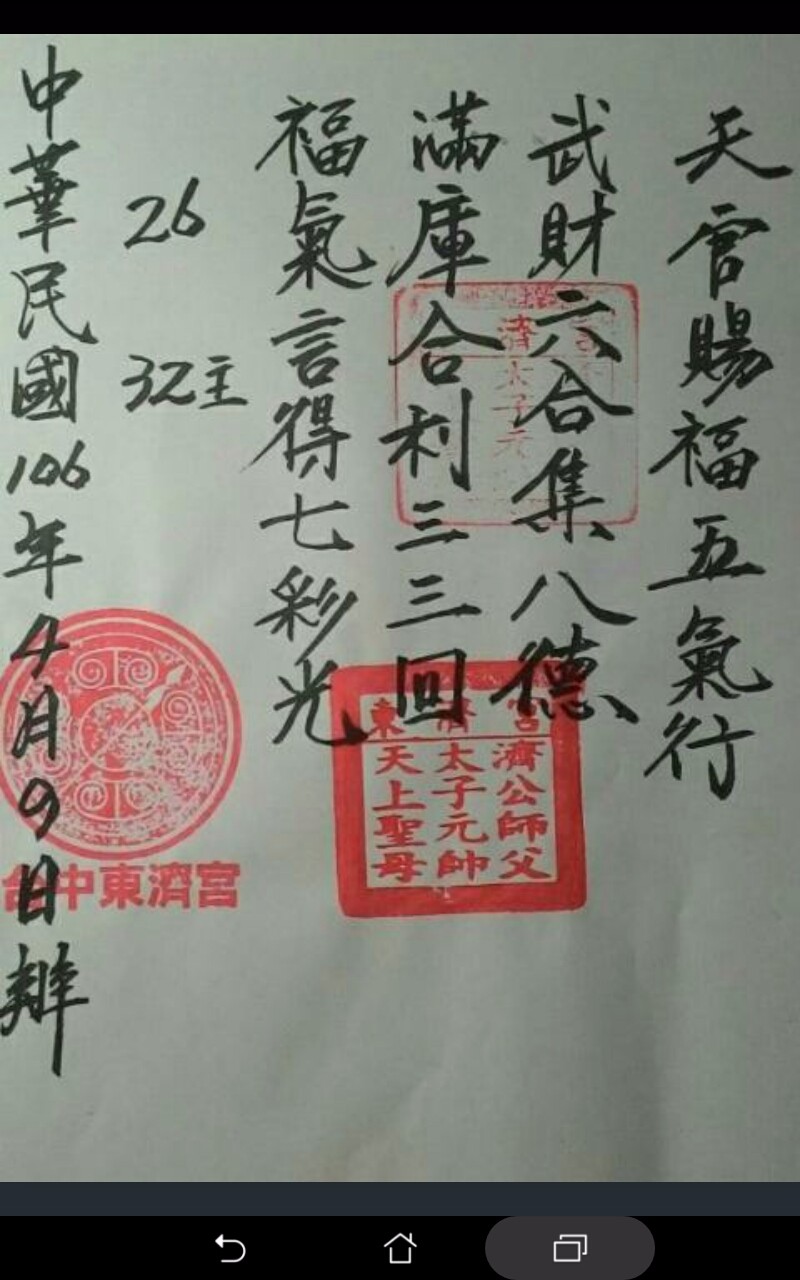 天官賜福五氣行
武財六合集八德
滿庫合利三三回
福氣言得七彩光
26
32主
中華民國106年4月9日辦
東濟宮
濟公師父
太子元帥
天上聖母
濟
太子元
台中東濟宮